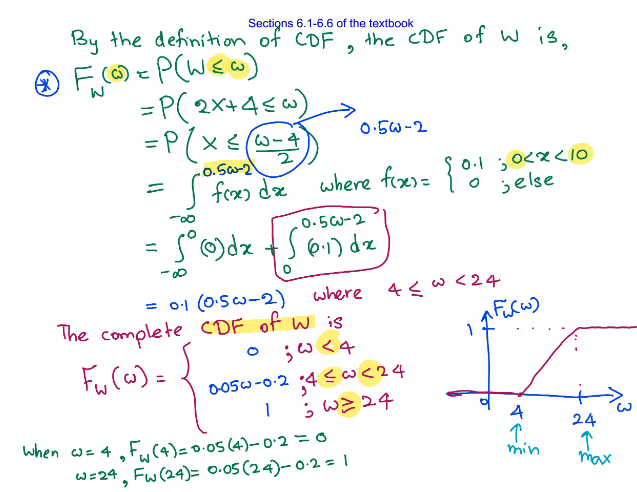 Sections 6.1-6.6 of the textbook
By the definition of CDF, the CDF of W is,
⊛ F_W(ω) = P(W ≤ ω)
= P(2X+4 ≤ ω)
= P(X ≤ (ω-4)/2) → 0.5ω-2
= ∫_{-∞}^{0.5ω-2} f(x) dx where f(x) = { 0.1 ; 0<x<10
0 ; else
= ∫_{-∞}^{0} (0) dx + ∫_{0}^{0.5ω-2} (0.1) dx
= 0.1 (0.5ω-2) where 4 ≤ ω < 24
The complete CDF of W is
F_W(ω) = { 0 ; ω < 4
0.05ω-0.2 ; 4 ≤ ω < 24
1 ; ω ≥ 24
F_W(ω)
1
0 4 24 ω
min max
When ω=4, F_W(4)=0.05(4)-0.2=0
ω=24, F_W(24)=0.05(24)-0.2=1